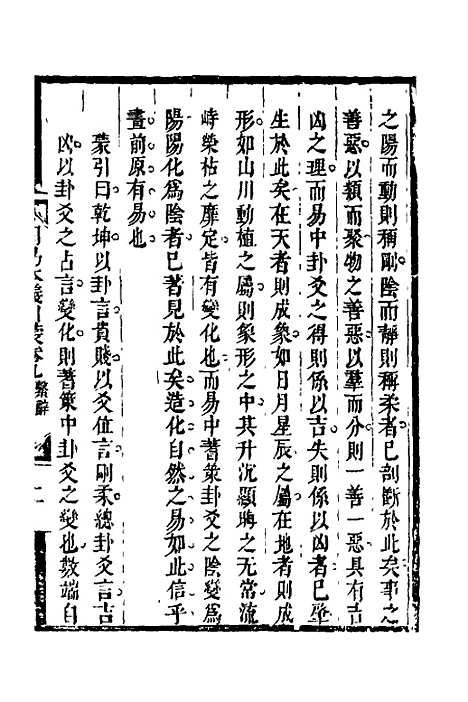 之陽而動則稱剛陰而靜則稱柔者已剖斷於此矣事之
善惡以類而聚物之善惡以羣而分則一善一惡具有吉
凶之理而易中卦爻之得則係以吉失則係以凶者已肇
生於此矣在天者則成象如日月星辰之屬在地者則成
形如山川動植之屬則象形之中其升沉顯晦之無常流
峙榮枯之靡定皆有變化也而易中蓍策卦爻之陰變爲
陽陽化爲陰者已著見於此矣造化自然之易如此信乎
畫前原有易也
蒙引曰乾坤以卦言貴賤以爻位言剛柔總卦爻言吉
凶以卦爻之占言變化則蓍策中卦爻之變也數端自
繫辭